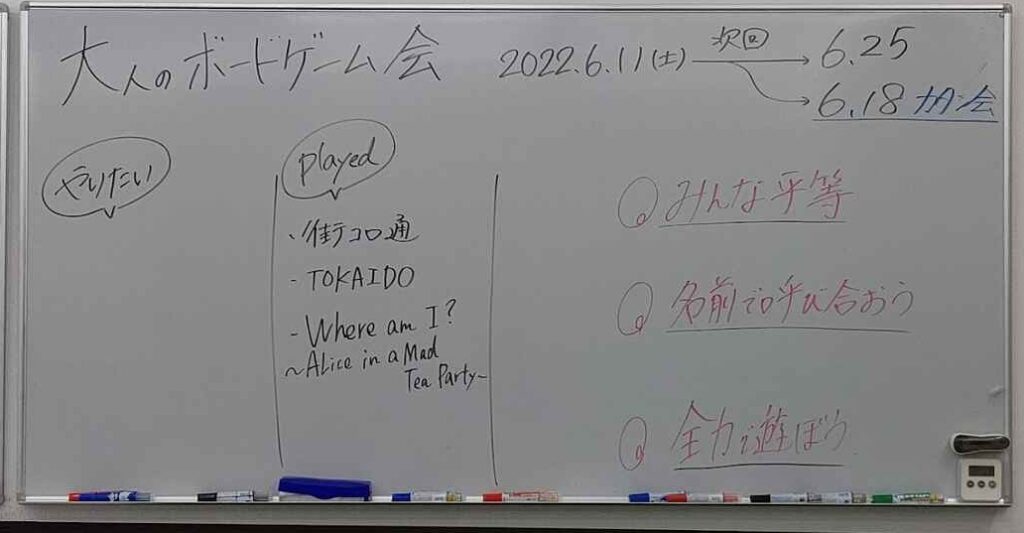 大人のボードゲーム会 2022.6.11(土) 次回 6.25
6.18 カタン会
やりたい
played
・街コロ通
- TOKAIDO
- Where am I?
~Alice in a Mad
Tea Party~
みんな平等
名前で呼び合おう
全力で遊ぼう